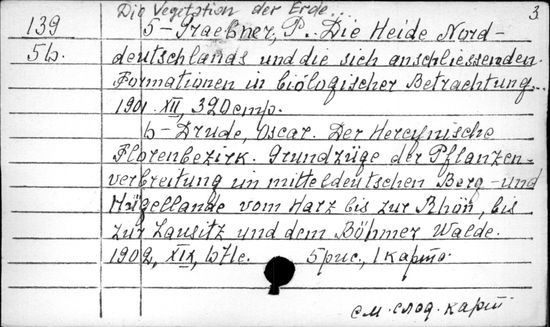 Die Vegetation der Erde... 3
139 5-Graebner, P. Die Heide Nord-
5б. deutschlands und die sich anschliessenden
Formationen in biologischer Betrachtung.
1901. XII, 320 стр.
6-Drude, Oscar. Der Hercynische
Florenbezirk. Grundzüge der Pflanzen-
verbreitung im mitteldeutschen Berg-und
Hügellande vom Harz bis zur Rhön, bis
zur Lausitz und dem Böhmer Walde.
1902, XIX, 671с. 5 рис., 1 карта.
см. след. карт